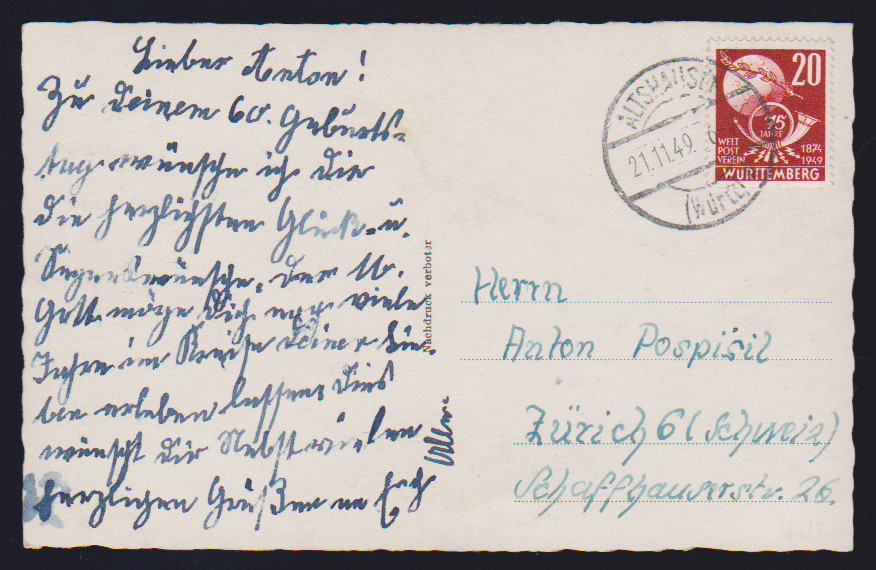 Lieber Anton!
Zu Deinem 60. Geburts-
tag wünsche ich Dir
die herzlichsten Glück- u.
Segenswünsche, der lb.
Gott möge Dich noch viele
Jahre im Kreise Deiner Lie-
ben erleben lassen, dies
wünscht dir Nebst vielen
herzligen Grüßen an Euch
Nachdruck verboten
ALTSHAUSEN
21.11.49.
(WÜRTT)
20
75
JAHRE
WELT
POST
VEREIN
1874
1949
WÜRTTEMBERG
Herrn
Anton Pospišil
Zürich 6 (Schweiz)
Schaffhauserstr. 26.